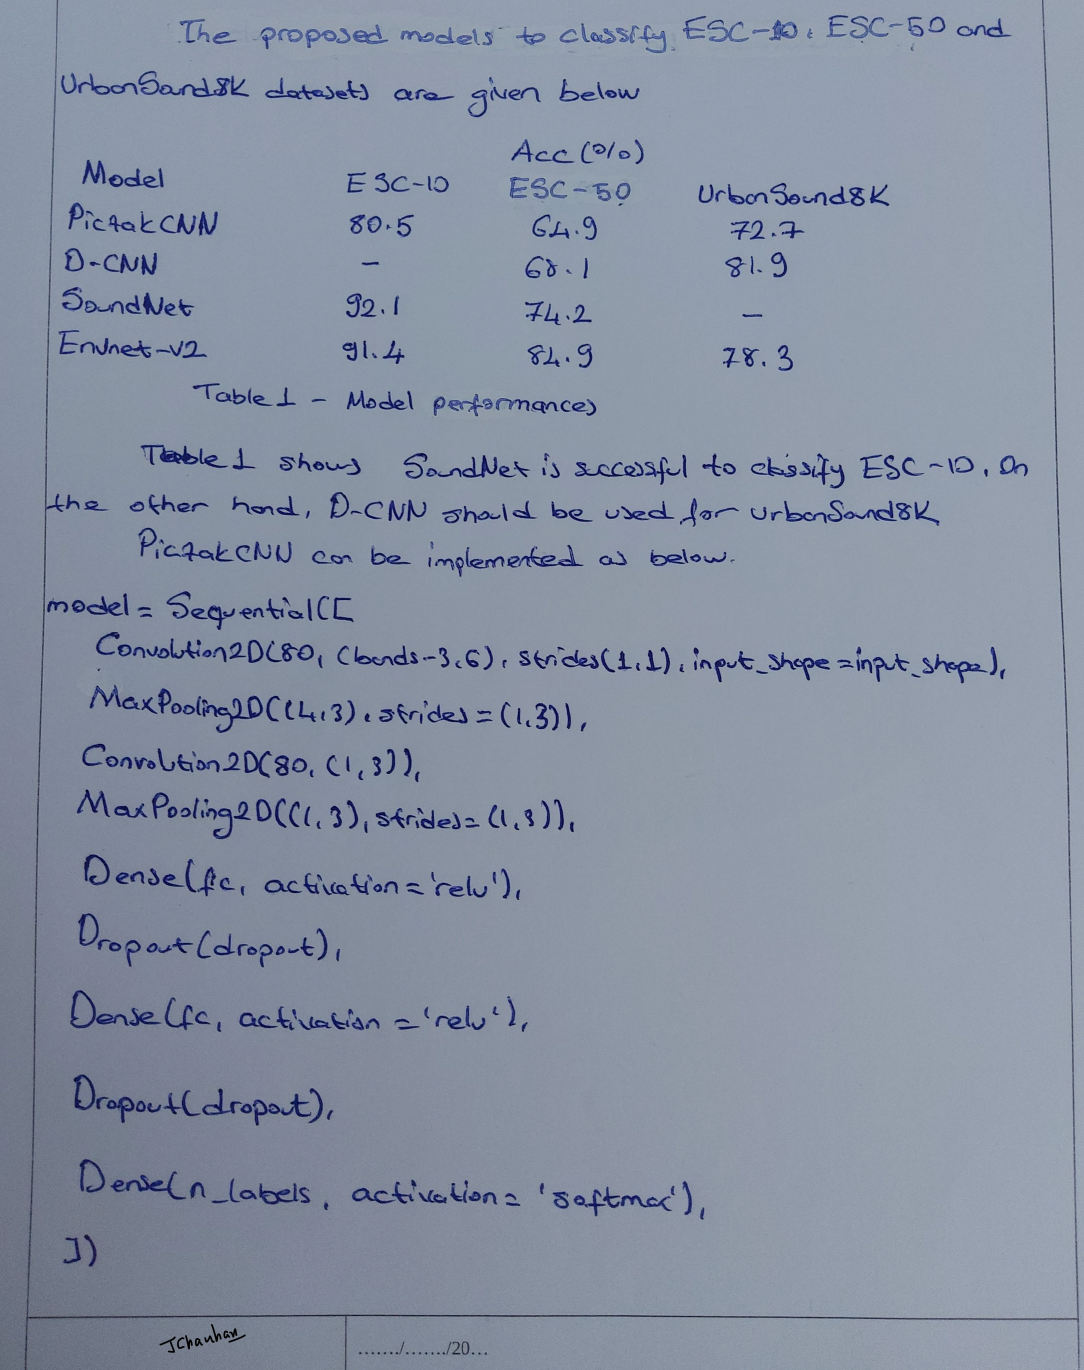 The proposed models to classify ESC-10, ESC-50 and
UrbanSound8K datasets are given below
Acc (%)
Model ESC-10 ESC-50 UrbanSound8K
PiczakCNN 80.5 64.9 72.7
D-CNN - 68.1 81.9
SoundNet 92.1 74.2 -
Envnet-v2 91.4 84.9 78.3
Table 1 - Model performances
Table 1 shows SoundNet is successful to classify ESC-10. On
the other hand, D-CNN should be used for UrbanSound8K
PiczakCNN can be implemented as below.
model = Sequential([
Convolution2D(80, (bands-3,6), strides(1,1), input_shape=input_shape),
MaxPooling2D((4,3), strides=(1,3)),
Convolution2D(80, (1,3)),
MaxPooling2D((1,3), strides=(1,3)),
Dense(fc, activation='relu'),
Dropout(dropout),
Dense(fc, activation='relu'),
Dropout(dropout),
Dense(n_labels, activation='softmax'),
])
JChauhan ......./......./20...